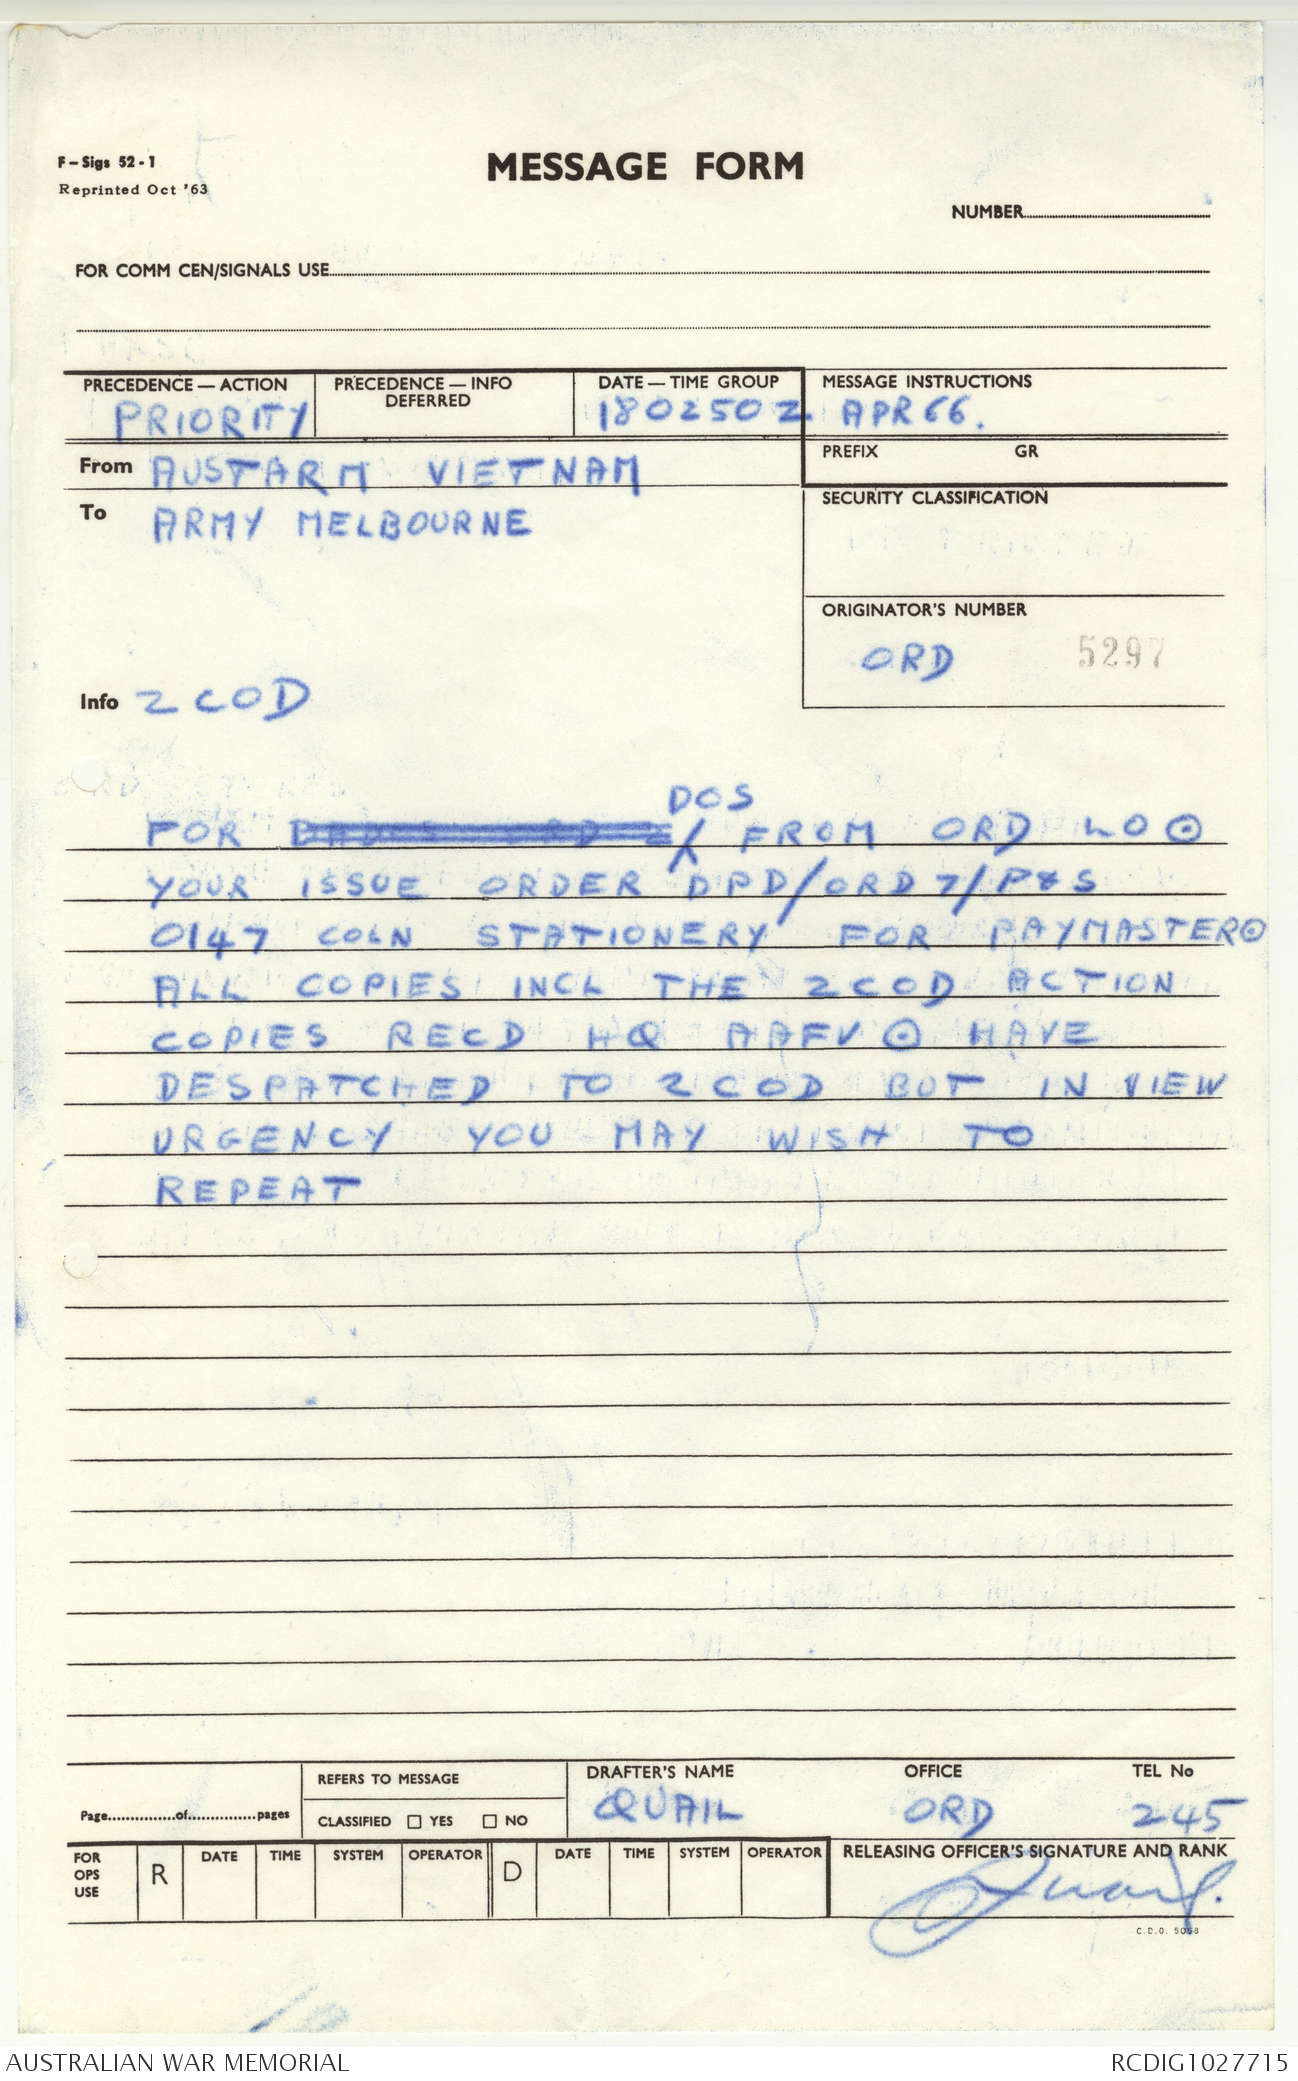 F-Sigs 52-1
Reprinted Oct '63
MESSAGE FORM
NUMBER
FOR COMM CEN/SIGNALS USE
PRECEDENCE — ACTION
PRIORITY
PRECEDENCE — INFO
DEFERRED
DATE — TIME GROUP
180250Z
MESSAGE INSTRUCTIONS
APR 66.
PREFIX GR
From AUSTARM VIETNAM
To ARMY MELBOURNE
SECURITY CLASSIFICATION
ORIGINATOR'S NUMBER
ORD 5297
Info 2 COD
DOS
FOR FROM ORD LO ⊙
YOUR ISSUE ORDER DPD/ORD 7/P&S
0147 COLN STATIONERY FOR PAYMASTER⊙
ALL COPIES INCL THE 2 COD ACTION
COPIES RECD HQ AAFV ⊙ HAVE
DESPATCHED TO 2 COD BUT IN VIEW
URGENCY YOU MAY WISH TO
REPEAT
Page...............of...............pages
REFERS TO MESSAGE
CLASSIFIED ☐ YES ☐ NO
DRAFTER'S NAME
QUAIL
OFFICE
ORD
TEL No
245
FOR
OPS
USE
R
DATE TIME SYSTEM OPERATOR
D
DATE TIME SYSTEM OPERATOR
RELEASING OFFICER'S SIGNATURE AND RANK
Quail.
AUSTRALIAN WAR MEMORIAL
RCDIG1027715